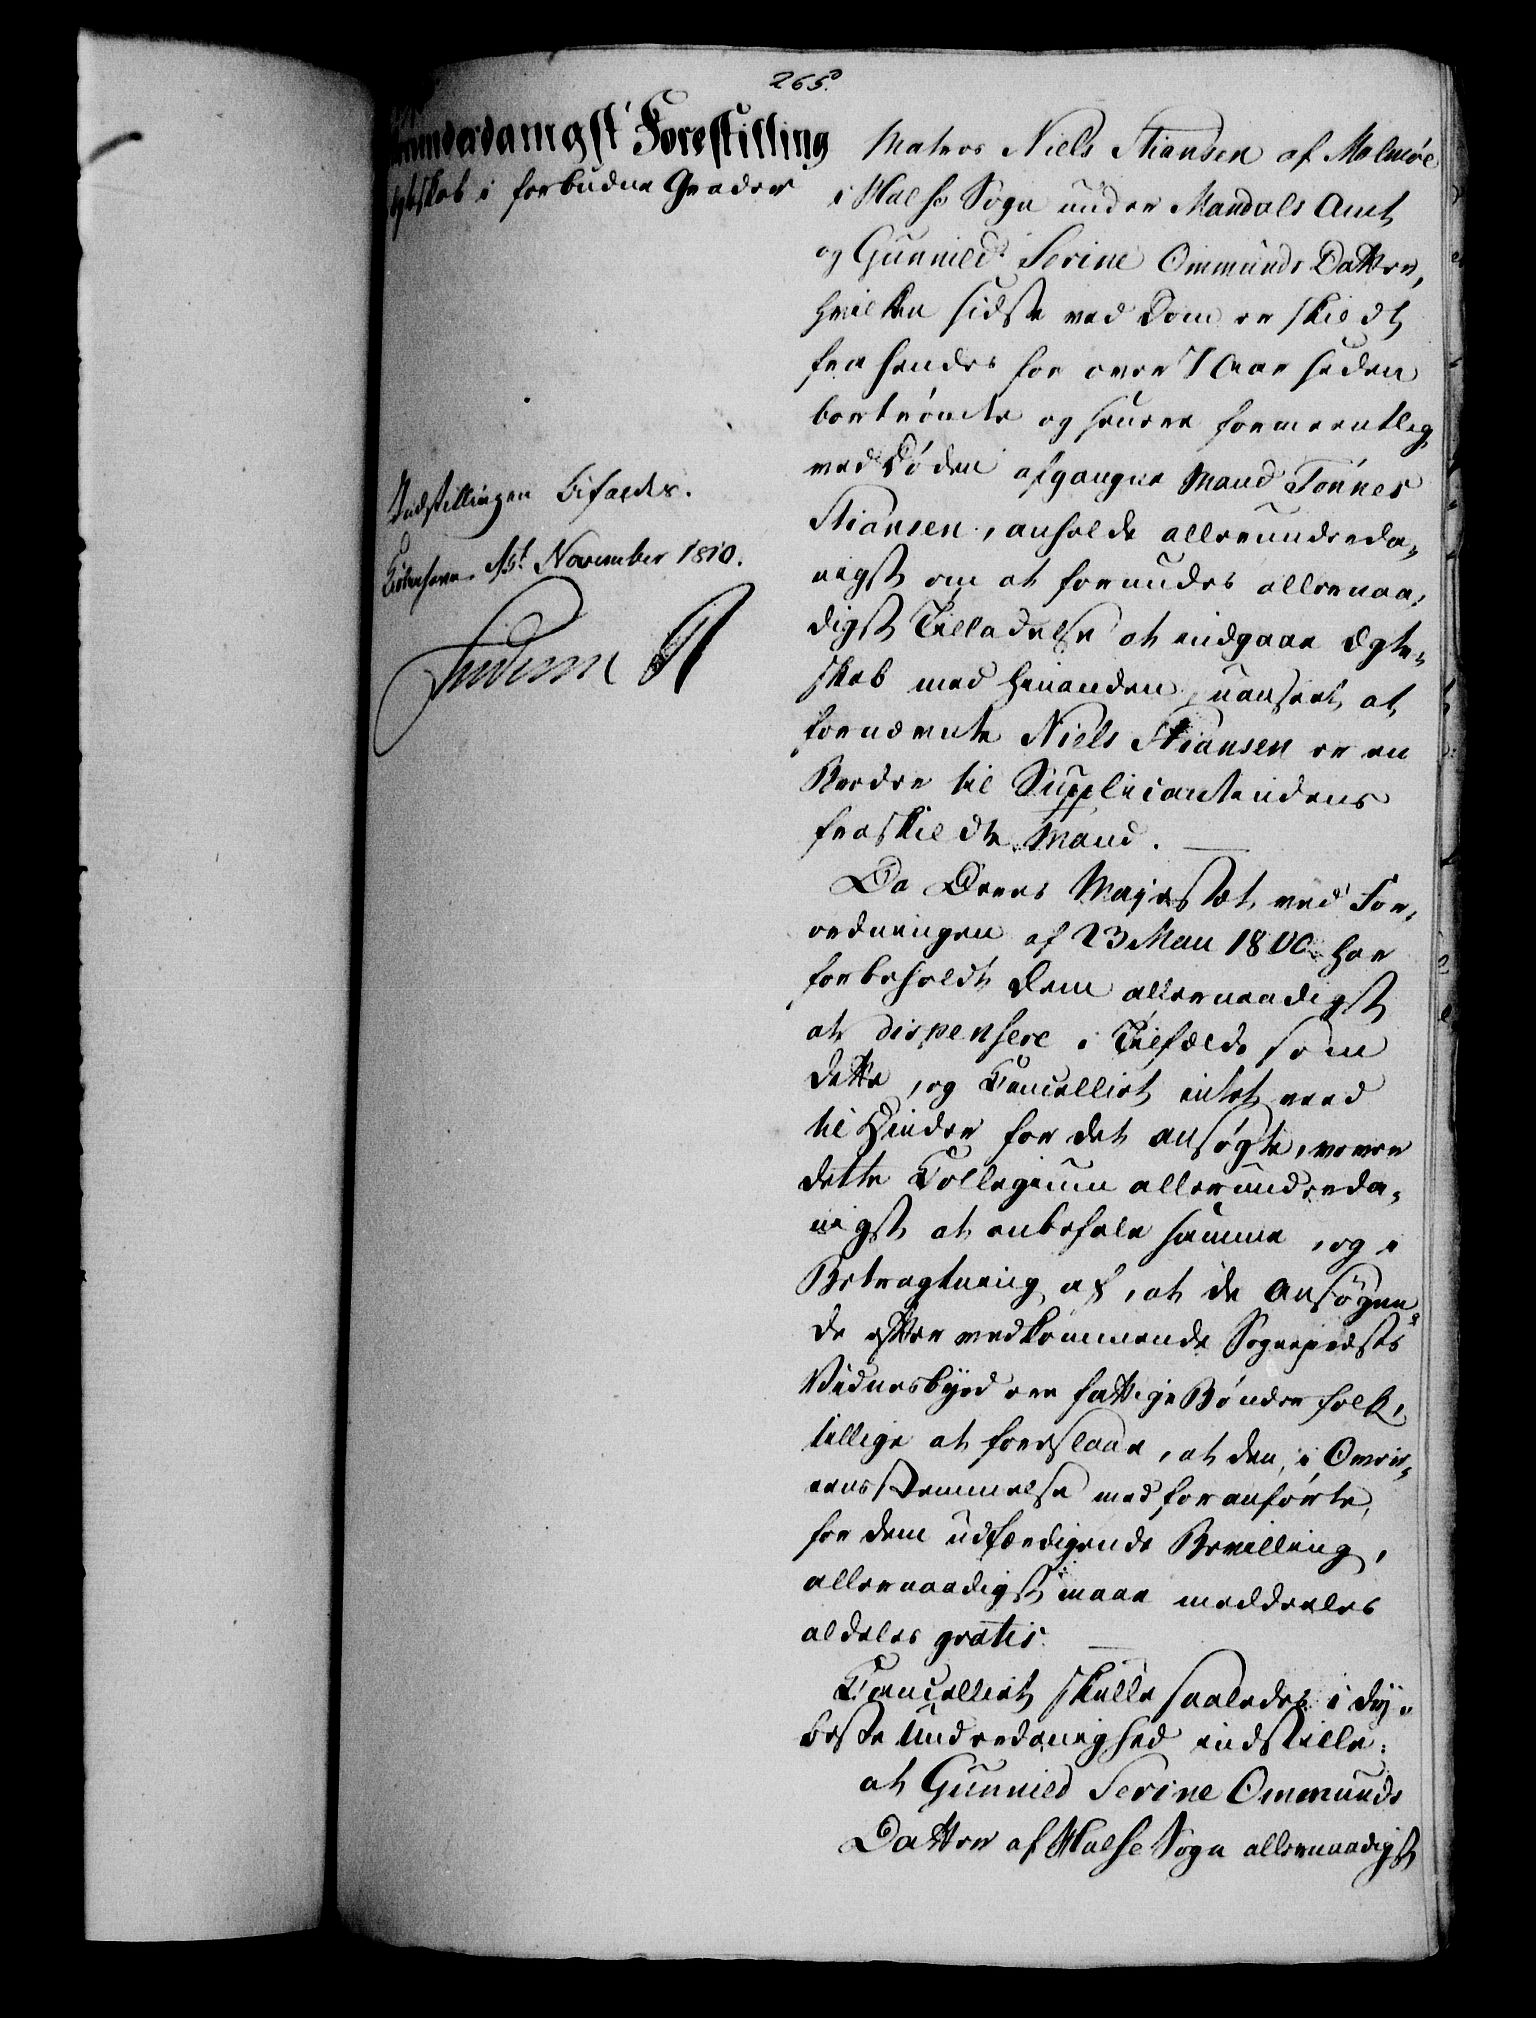 265.
Forestilling
i forbudne Grader
Indstillingen bifaldes.
Kiøbenhavn November 1810.
Matros Niels Stiansen af Malmøe
i Halse Sogn under Mandals Amt
og Gunnild Serine Ommunds Datter,
hvilken sidste ved Dom er skildt
fra hendes for over 7 Aar siden
bortrømte og senere formeentlig
ved Døden afgangne Mand Tønnes
Stiansen, anholde allerundreda-
nigst om at forundes allernaa-
digst Tilladelse at indgaae Ægte-
skab med hinanden, uanseet at
fornævnte Niels Stiansen er en
Broder til Supplicantindens
fraskildte Mand. —
Da Deres Majestæt, ved For-
ordningen af 23 Mai 1800 har
forbeholdt Dem allernaadigst
at dispensere i Tilfælde som
dette, og Cancelliet intet veed
til Hinder for det ansøgte, vover
dette Collegium allerundreda-
nigst at anbefale samme, og i
Betragtning af, at de Ansøgen-
de efter vedkommende Sognepræsts
Vidnesbyrd ere fattige Bønderfolk,
tillige at foreslaae, at den, i Over-
eensstemmelse med foranførte,
for dem udfærdigende Bevilling,
allernaadigst maae meddeeles
aldeles gratis. —
Cancelliet skulle saaledes i dy-
beste Underdanighed indstille:
at Gunnild Serine Ommunds
Datter af Halse Sogn allernaadigst